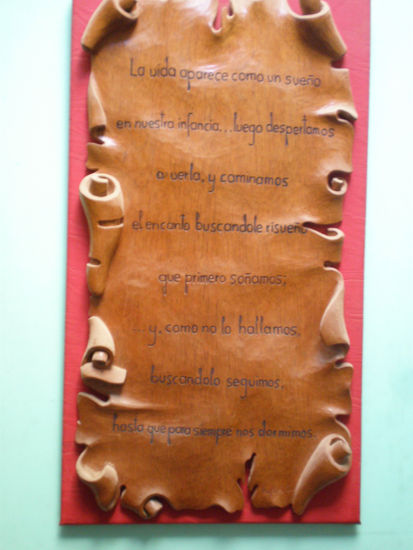 La vida aparece como un sueño
en nuestra infancia...luego despertamos
a verla, y caminamos
el encanto buscandole risueño
que primero soñamos;
...y, como no lo hallamos,
buscandolo seguimos,
hasta que para siempre nos dormimos.